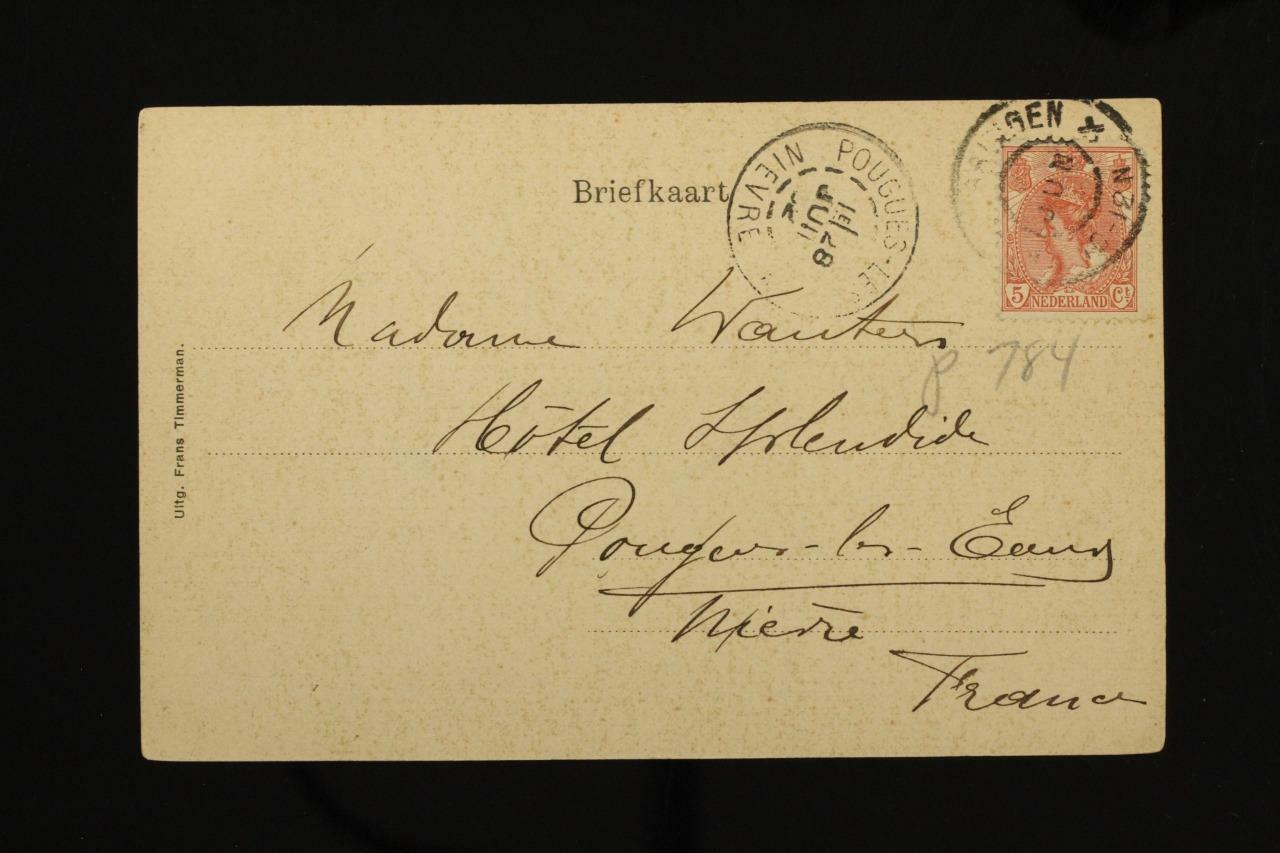 Briefkaart
NIEVRE POUGUES-LE
JUIL
GEN
5 NEDERLAND Ct
Madame Wauters
P 784
Hôtel Splendide
Pougues-les-Eaux
Nièvre
France
Uitg. Frans Timmerman.